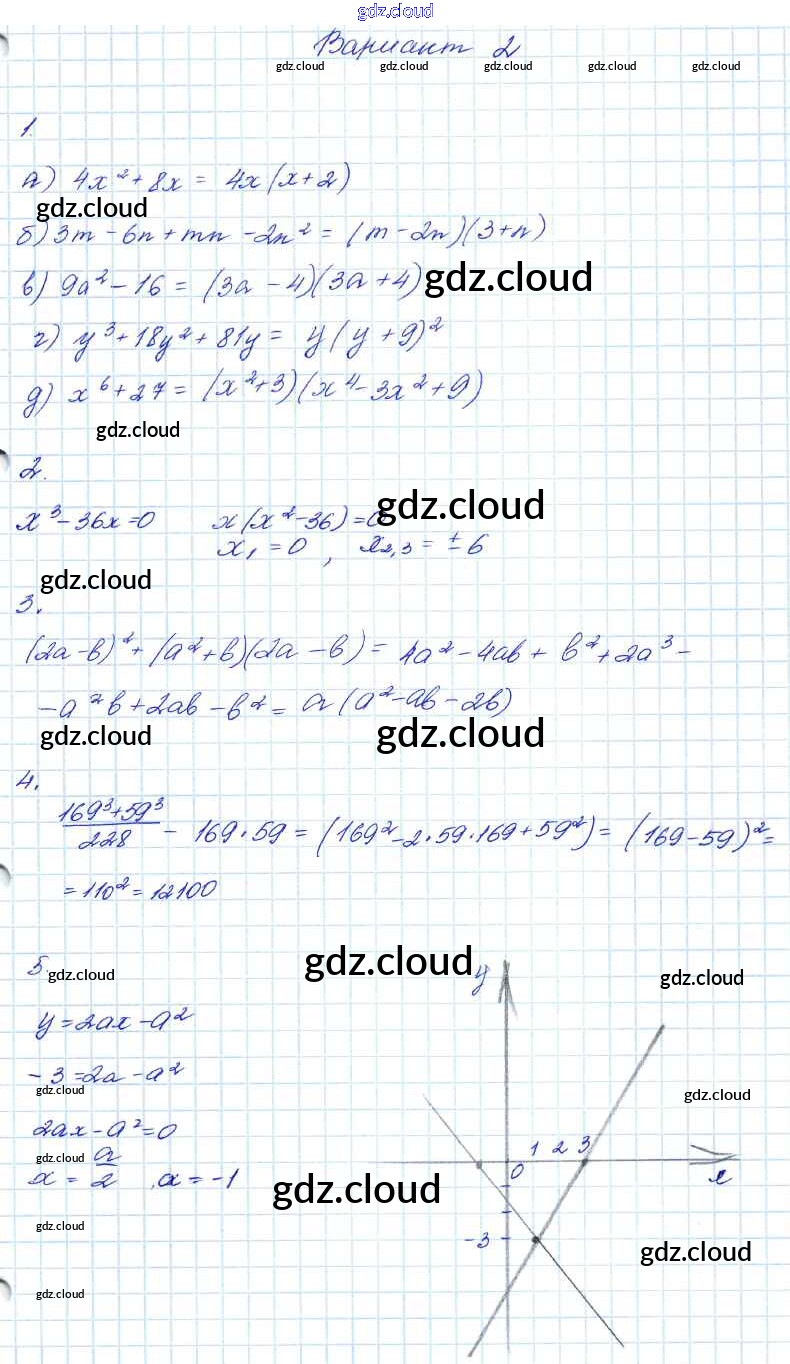 gdz.cloud
Вариант 2
gdz.cloud gdz.cloud gdz.cloud gdz.cloud gdz.cloud
1.
а) 4x² + 8x = 4x(x+2)
gdz.cloud
б) 3m - 6n + mn - 2n² = (m - 2n)(3+n)
в) 9a² - 16 = (3a - 4)(3a + 4) gdz.cloud
г) y³ + 18y² + 81y = y(y + 9)²
д) x⁶ + 27 = (x² + 3)(x⁴ - 3x² + 9)
gdz.cloud
2.
x³ - 36x = 0 x(x² - 36) = 0 gdz.cloud
x₁ = 0, x₂,₃ = ± 6
gdz.cloud
3.
(2a - b)² + (a² + b)(2a - b) = 4a² - 4ab + b² + 2a³ -
- a²b + 2ab - b² = a(a² - ab - 2b)
gdz.cloud gdz.cloud
4.
(169³ + 59³)/228 - 169·59 = (169² - 2·59·169 + 59²) = (169 - 59)² =
= 110² = 12100
5. gdz.cloud gdz.cloud y gdz.cloud
y = 2ax - a²
-3 = 2a - a²
gdz.cloud gdz.cloud
2ax - a² = 0
1 2 3
gdz.cloud
x = a/2, a = -1 0 x
gdz.cloud
gdz.cloud
-3
gdz.cloud
gdz.cloud